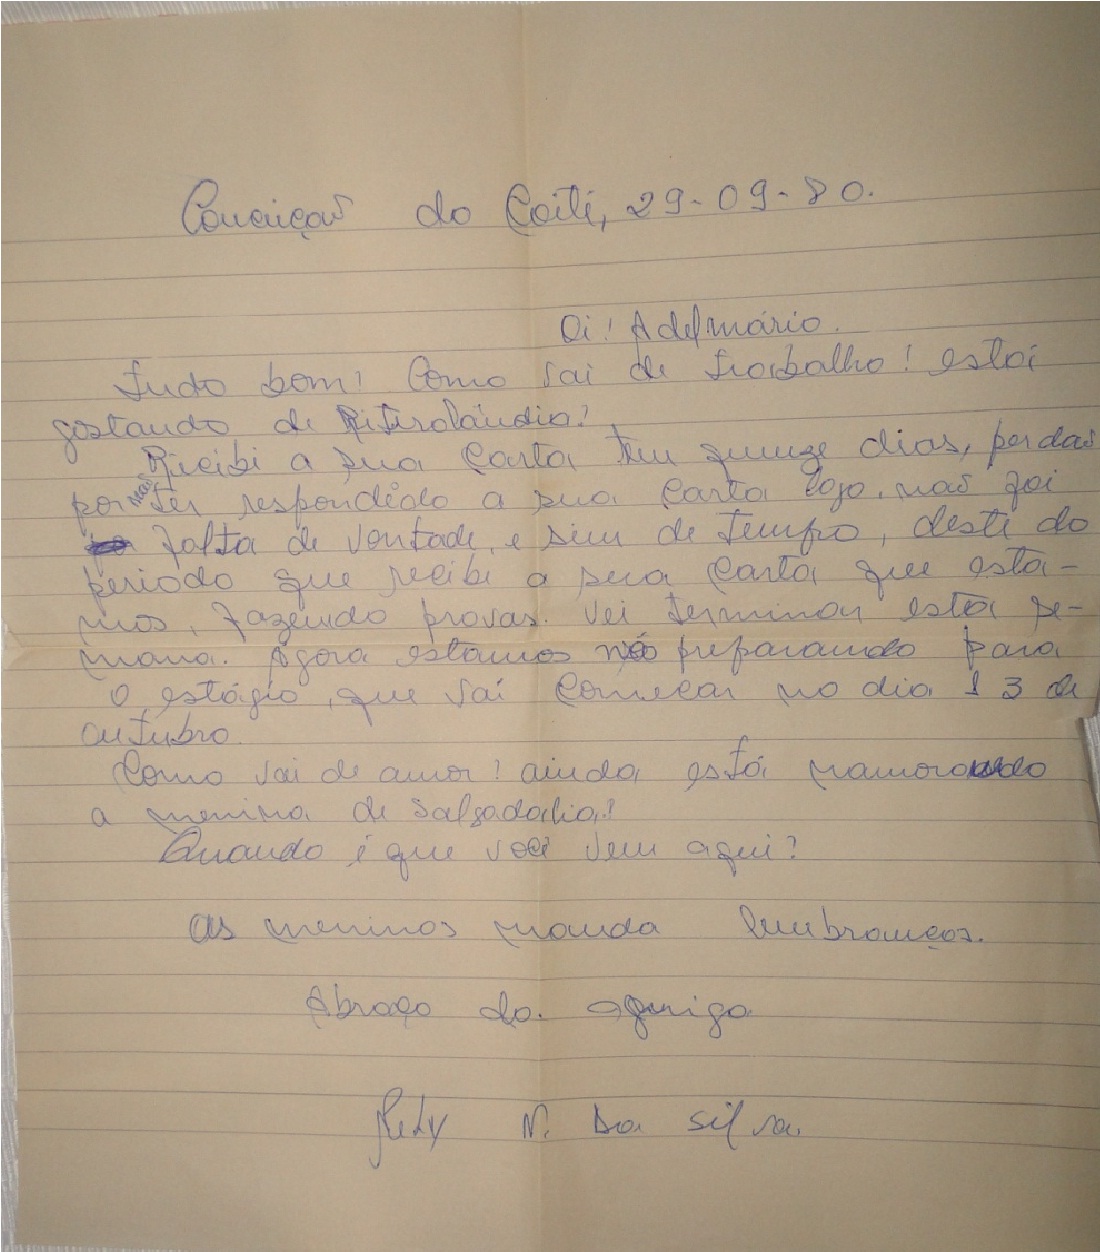 Conceição do Coité, 29-09-80.
Oi! Adelmário.
Tudo bom! Como vai de trabalho! está
gostando de Ritirolândia?
Recibi a sua carta tem quinze dias, perdão
por não ter respondido a sua carta logo, não foi
falta de vontade, e sim de tempo, deste do
periodo que recibi a sua carta que esta-
mos, fazendo provas. Vei terminar esta se-
mana. Agora estamos nós preparando para
o estágio, que vai começar no dia 13 de
outubro.
Como vai de amor! ainda está namorando
a menina de Salgadalia?
Quando é que você vem aqui?
As meninas manda lembranças.
Abraço da amiga
N. Da Silva.